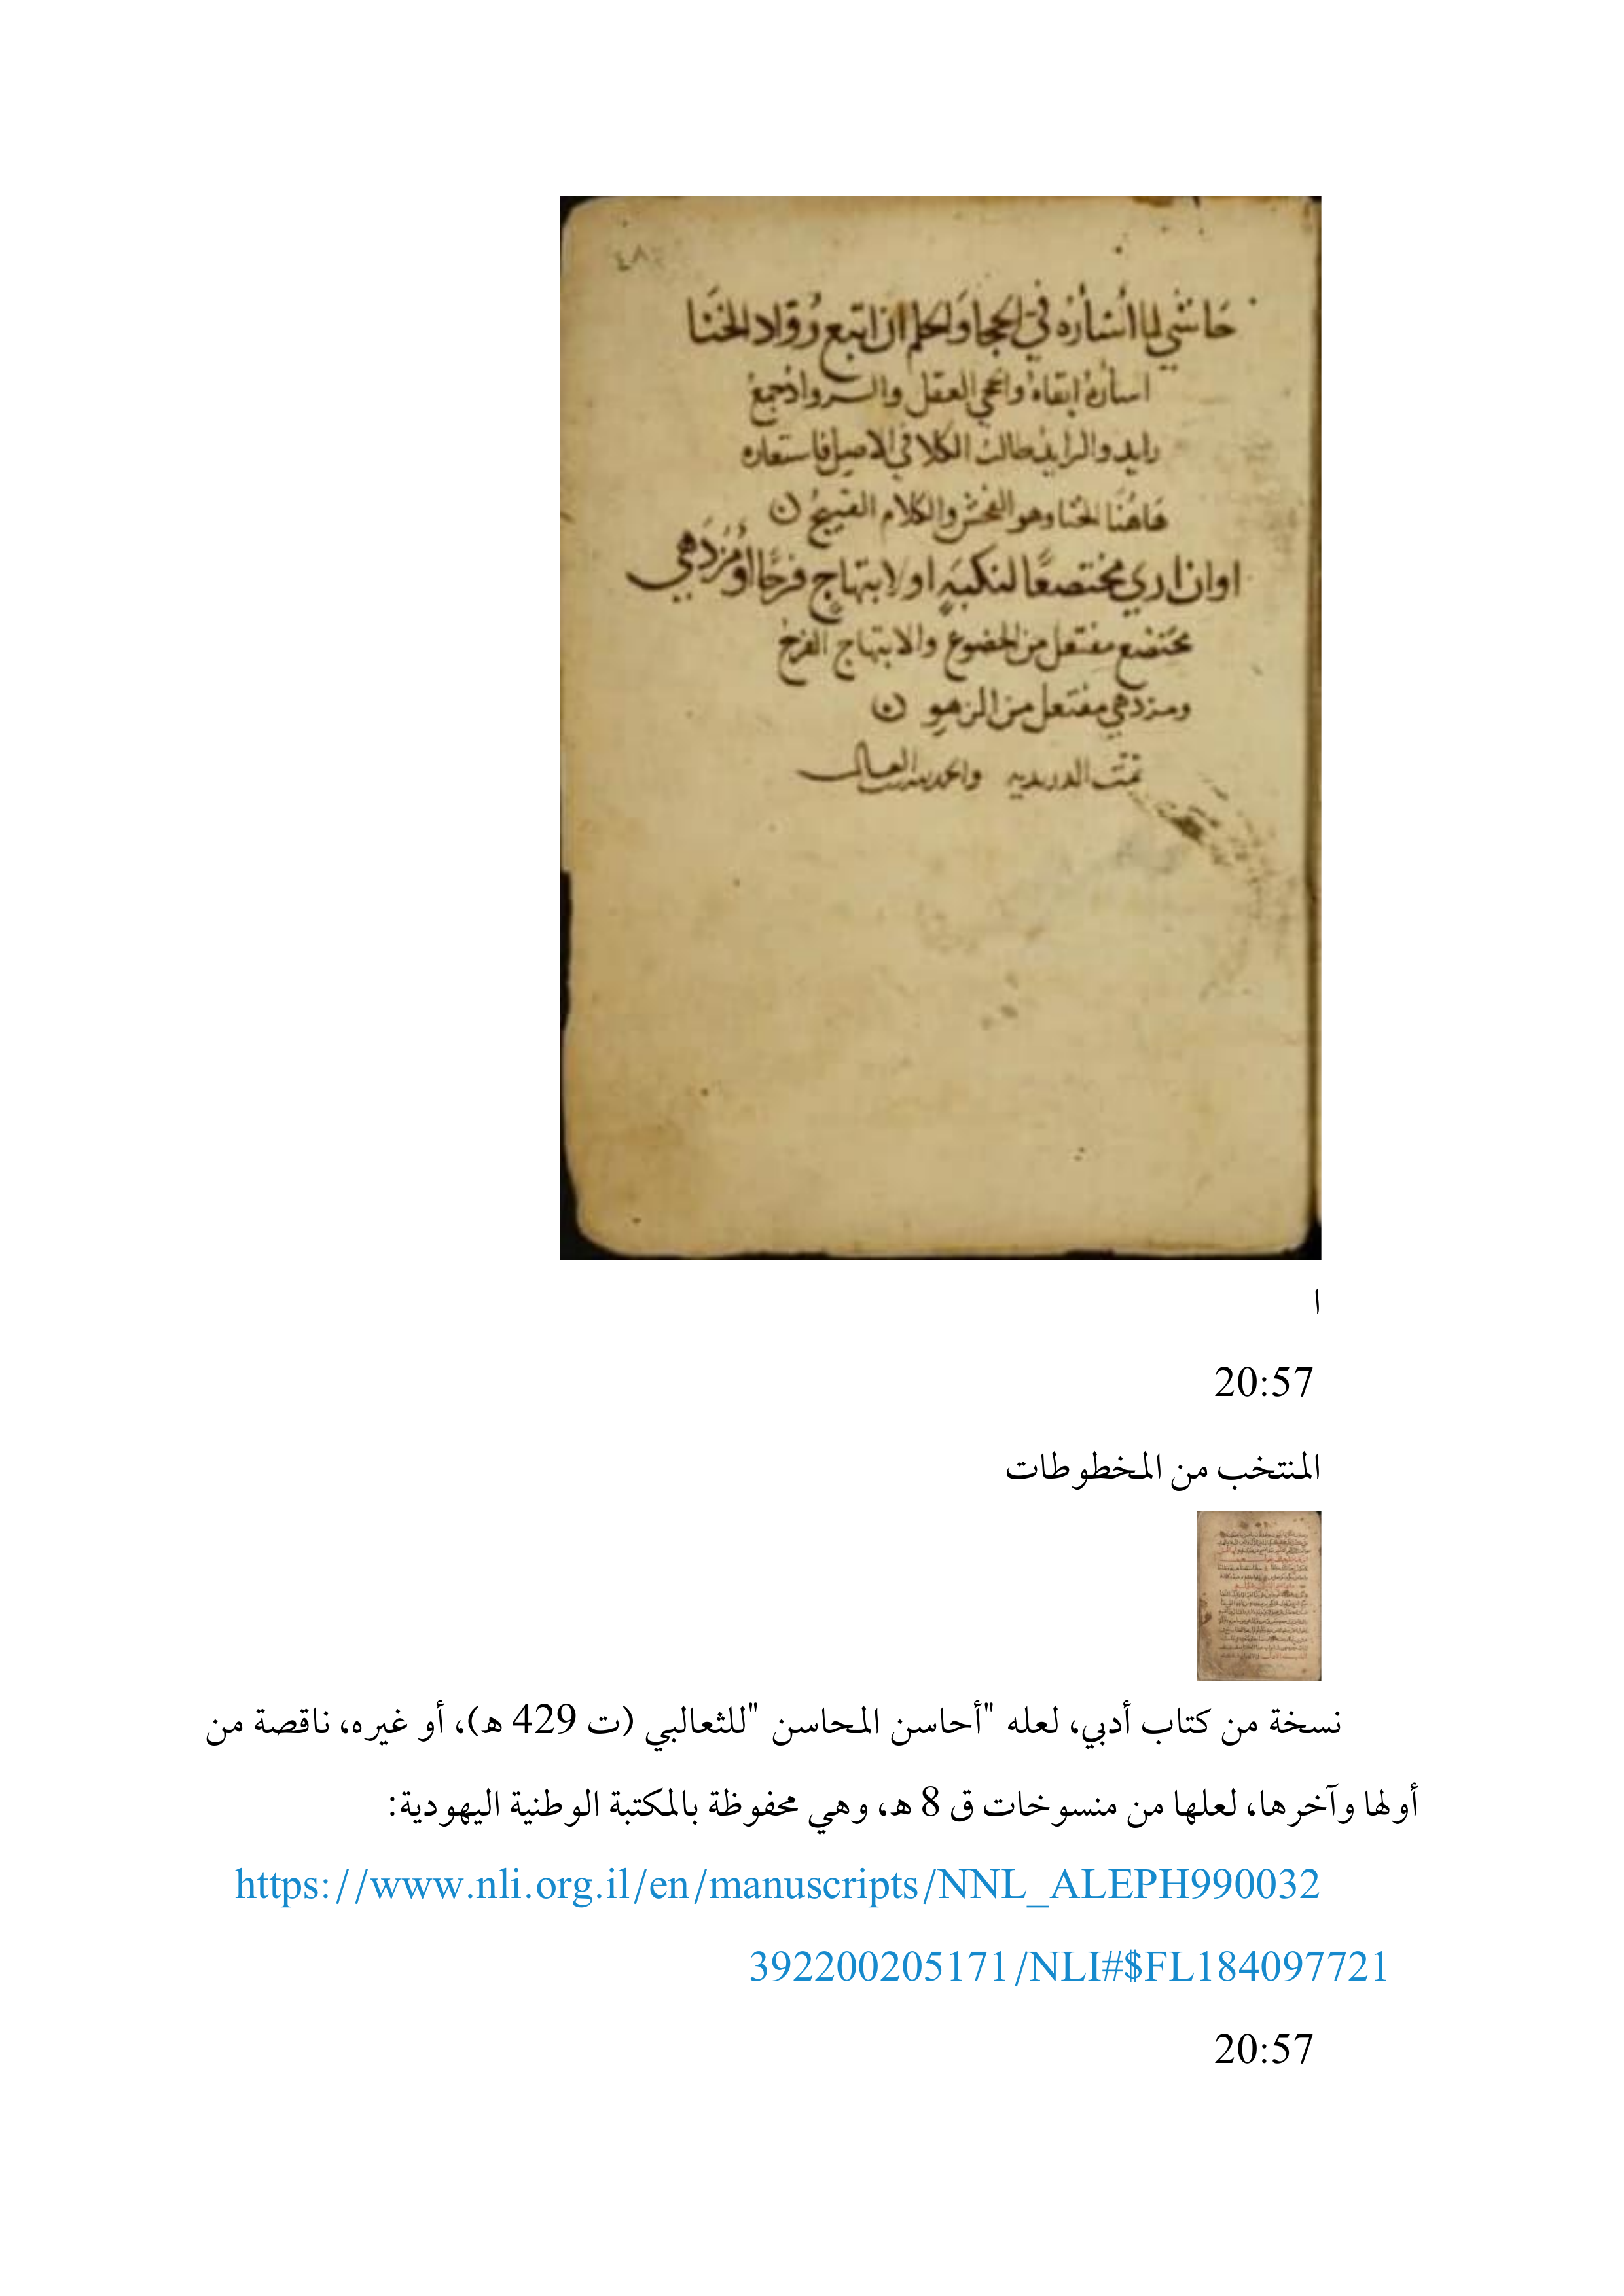 حَاشَي لما أسْأَرَهُ فيّ الحجا والحلم ان اتبع رُوّاد الخنَا
اسأرهُ ابقاهُ والحجي العقل والرواد جمع
رايد والرايد طالب الكلا في الاصل فاستعاره
هاهُنَا للخنا وهو الفحش والكلام القبيح
او ان اري مختضعًا لنكبةٍ او لابتهاجٍ فرحًا أومُزدَهي
مختضع مفتعل من الخضوع والابتهاج الفرح
ومزدهي مفتعل من الزهو
تمت الدريدية والحمد لله رب العالمين
ا
20:57
المنتخب من المخطوطات
نسخة من كتاب أدبي، لعله "أحاسن المحاسن "للثعالبي (ت 429 ه)، أو غيره، ناقصة من
أولها وآخرها، لعلها من منسوخات ق 8 ه، وهي محفوظة بالمكتبة الوطنية اليهودية:
https://www.nli.org.il/en/manuscripts/NNL_ALEPH990032
392200205171/NLI#$FL184097721
20:57